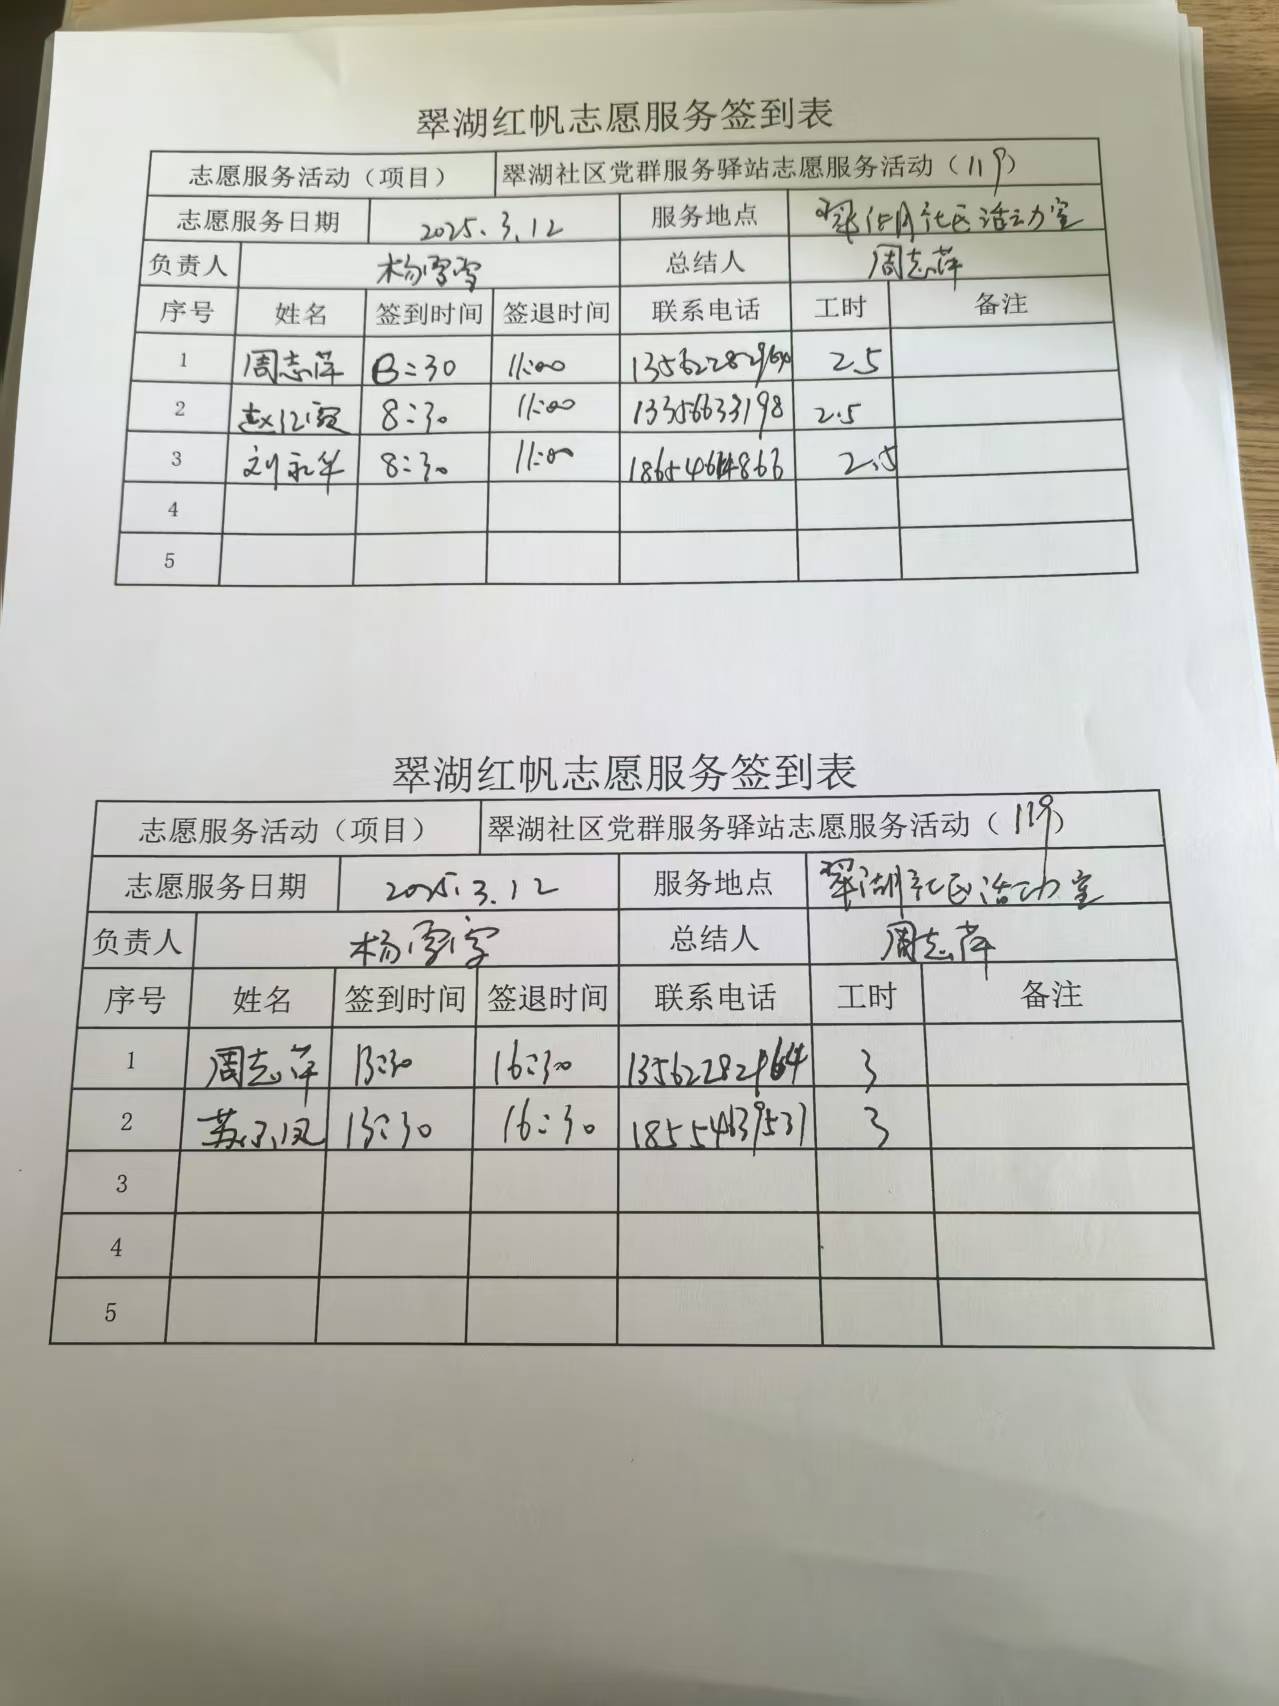 翠湖红帆志愿服务签到表
志愿服务活动（项目） 翠湖社区党群服务驿站志愿服务活动（119）
志愿服务日期 2025.3.12 服务地点 翠湖社区活动室
负责人 杨雪雪 总结人 周志萍
序号 姓名 签到时间 签退时间 联系电话 工时 备注
1 周志萍 8:30 11:00 13562282964 2.5
2 赵红霞 8:30 11:00 13356633198 2.5
3 刘永华 8:30 11:00 2.5
4
5
翠湖红帆志愿服务签到表
志愿服务活动（项目） 翠湖社区党群服务驿站志愿服务活动（119）
志愿服务日期 2025.3.12 服务地点 翠湖社区活动室
负责人 杨雪雪 总结人 周志萍
序号 姓名 签到时间 签退时间 联系电话 工时 备注
1 周志萍 13:30 16:30 13562282964 3
2 13:30 16:30 18554639531 3
3
4
5